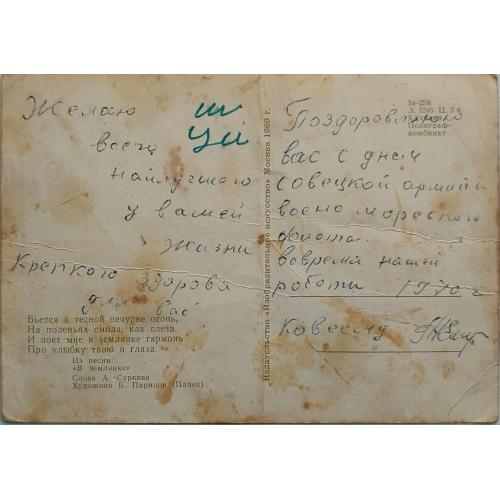 Желаю
всего
наилучшего
у вашей
жизни
крепкого здоровя
для вас
Бьется в тесной печурке огонь,
На поленьях смола, как слеза.
И поет мне в землянке гармонь
Про улыбку твою и глаза.
Из песни:
«В землянке»
Слова А. Суркова
Художник Б. Парилов (Палех)
Издательство «Изобразительное искусство» Москва 1969 г.
За-250.
З. 1246. Ц. 2 к.
Полиграф-
комбинат
Поздоровляю
вас с днем
совецкой армии
воено морсвого
флота.
вовремя нашей
роботи 1970 г